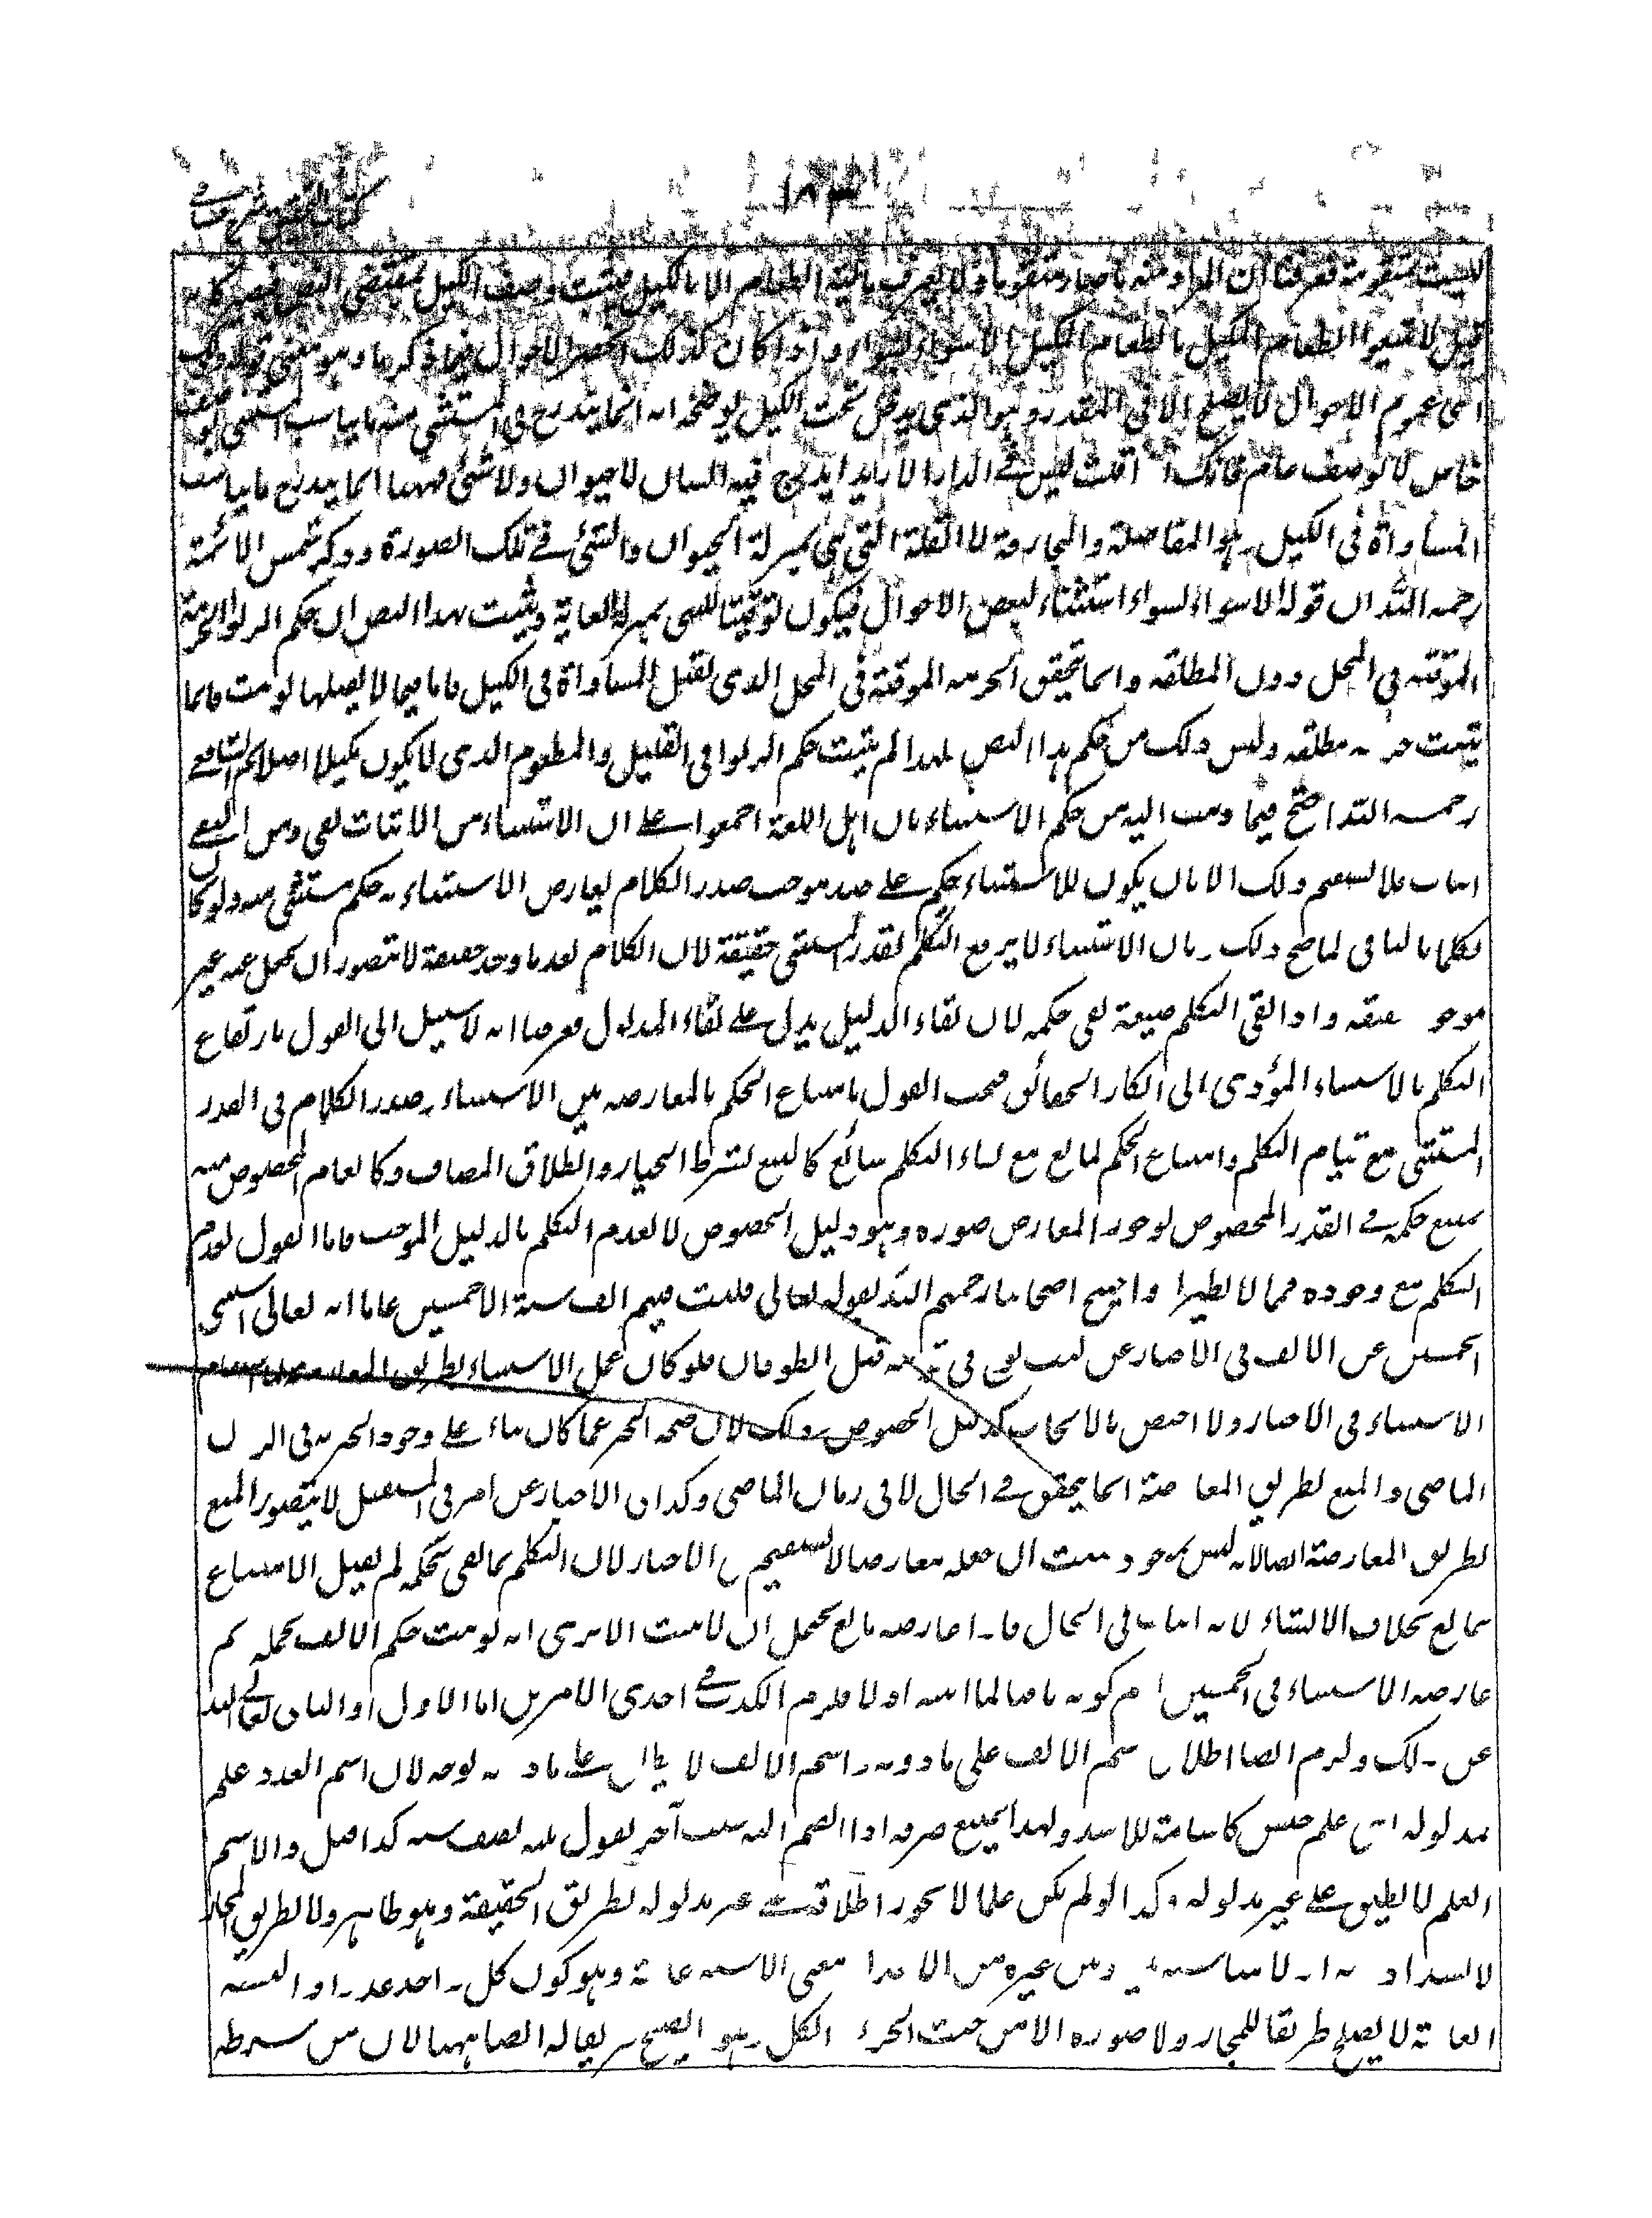 ١٨٣
ليست متقومة فعرفنا ان المراد منه ما صار متقوما ولا يعرف مالية الطعام الا بالكيل فيثبت وصف الكيل بمقتضى النص فيصير كانه
قيل لا تبيعوا الطعام الكيل بالطعام الكيل الا سواء بسواء واذا كان كذلك انحصر الاحوال فيما ذكرنا وهو معنى قوله
اعنى عموم الاحوال لا يصلح الا فى المقدر وهو الذى يدخل تحت الكيل يوضحه انه انما يندرج فى المستثنى منه ما يناسب المستثنى بوصف
خاص لا بوصف عام فانك اذا قلت ليس فى الدار الا زيد اندرج فيه انسان لا حيوان ولا شىء فههنا انما يندرج ما يناسب
المساواة فى الكيل وهو المفاضلة والمجازفة لا القلة التى هى بمنزلة الحيوان والشىء فى تلك الصورة وذكر شمس الائمة
رحمه الله ان قوله الا سواء بسواء استثناء لبعض الاحوال فيكون توقيتا للنهى بمنزلة الغاية ويثبت بهذا النص ان حكم الربوا الحرمة
الموقتة فى المحل دون المطلقة وانما تتحقق الحرمة الموقتة فى المحل الذى يقبل المساواة فى الكيل فاما فيما لا يقبلها لو ثبت فانما
يثبت حرمة مطلقة وليس ذلك من حكم هذا النص فلهذا لم يثبت حكم الربوا فى القليل والمطعوم الذى لا يكون مكيلا اصلا الشافعى
رحمه الله احتج فيما ذهب اليه من حكم الاستثناء بان اهل اللغة اجمعوا على ان الاستثناء من الاثبات نفى ومن النفى
اثبات فلا يستقيم ذلك الا بان يكون للاستثناء حكم على ضد موجب صدر الكلام يعارض الاستثناء به حكم مستثنى منه ولو كان
تكلما بالباقى لما صح ذلك وبان الاستثناء لا يرفع التكلم بقدر المستثنى حقيقة لان الكلام بعد ما وجد حقيقة لا يتصور ان يجعل غير
موجود حقيقة واذا بقى التكلم صيغة بقى حكمه لان بقاء الدليل يدل على بقاء المدلول فعرفنا انه لا سبيل الى القول بارتفاع
التكلم بالاستثناء المؤدى الى انكار الحقائق فيجب القول بامتناع الحكم بالمعارضة بين الاستثناء وصدر الكلام فى القدر
المستثنى مع قيام التكلم وامتناع الحكم لمانع مع بقاء التكلم سائغ كالبيع بشرط الخيار والطلاق المضاف وكالعام المخصوص منه
يمتنع حكمه فى القدر المخصوص لوجود المعارض صورة وهو دليل الخصوص لا لعدم التكلم بالدليل الموجب فاما القول بعدم
التكلم مع وجوده فمما لا نظير له واحتج اصحابنا رحمهم الله بقوله تعالى فلبث فيهم الف سنة الا خمسين عاما انه تعالى استثنى
الخمسين عن الالف فى الاخبار عن لبث نوح فى قومه قبل الطوفان فلو كان عمل الاستثناء بطريق المعارضة لما استقام
الاستثناء فى الاخبار ولا اختص بالايجاب كدليل الخصوص وذلك لان صحة الخبر عما كان بناء على وجود المخبر به فى الزمان
الماضى والمنع بطريق المعارضة انما يتحقق فى الحال لا فى زمان الماضى وكذا فى الاخبار عن امر فى المستقبل لا يتصور المنع
بطريق المعارضة ايضا لانه ليس بموجود فثبت ان جعله معارضا لا يستقيم فى الاخبار لان التكلم لما بقى بحكمه لم يقبل الامتناع
بمانع بخلاف الانشاء لانه اثبات فى الحال فاذا عارضه مانع يحتمل ان لا يثبت الا ترى انه لو ثبت حكم الالف بجملته ثم
عارضه الاستثناء فى الخمسين لزم كونه نافيا لما اثبته اولا فلزم الكذب فى احدى الامرين اما الاول او الثانى تعالى الله
عن ذلك ولزم ايضا اطلاق اسم الالف على ما دونه واسم الالف لا يطلق على ما دونه بوجه لان اسم العدد علم
مدلوله اى علم جنس كاسامة للاسد ولهذا يمتنع صرفه اذا انضم اليه سبب آخر يقول ستة نصف سنة كذا اصل والاسم
العلم لا يطلق على غير مدلوله وكذا لو لم يكن علما لا يجوز اطلاقه على غير مدلوله بطريق الحقيقة وهو ظاهر ولا بطريق المجاز
لانسداد بابه اذ لا مناسبة بينه وبين غيره من الاعداد معنى الا نسبة عامة وهو كون كل واحد عددا والنسبة
العامة لا يصلح طريقا للمجاز ولا صورة الا من حيث الجزء الكل وهو لا يصلح طريقا له ايضا ههنا لان من شرطه